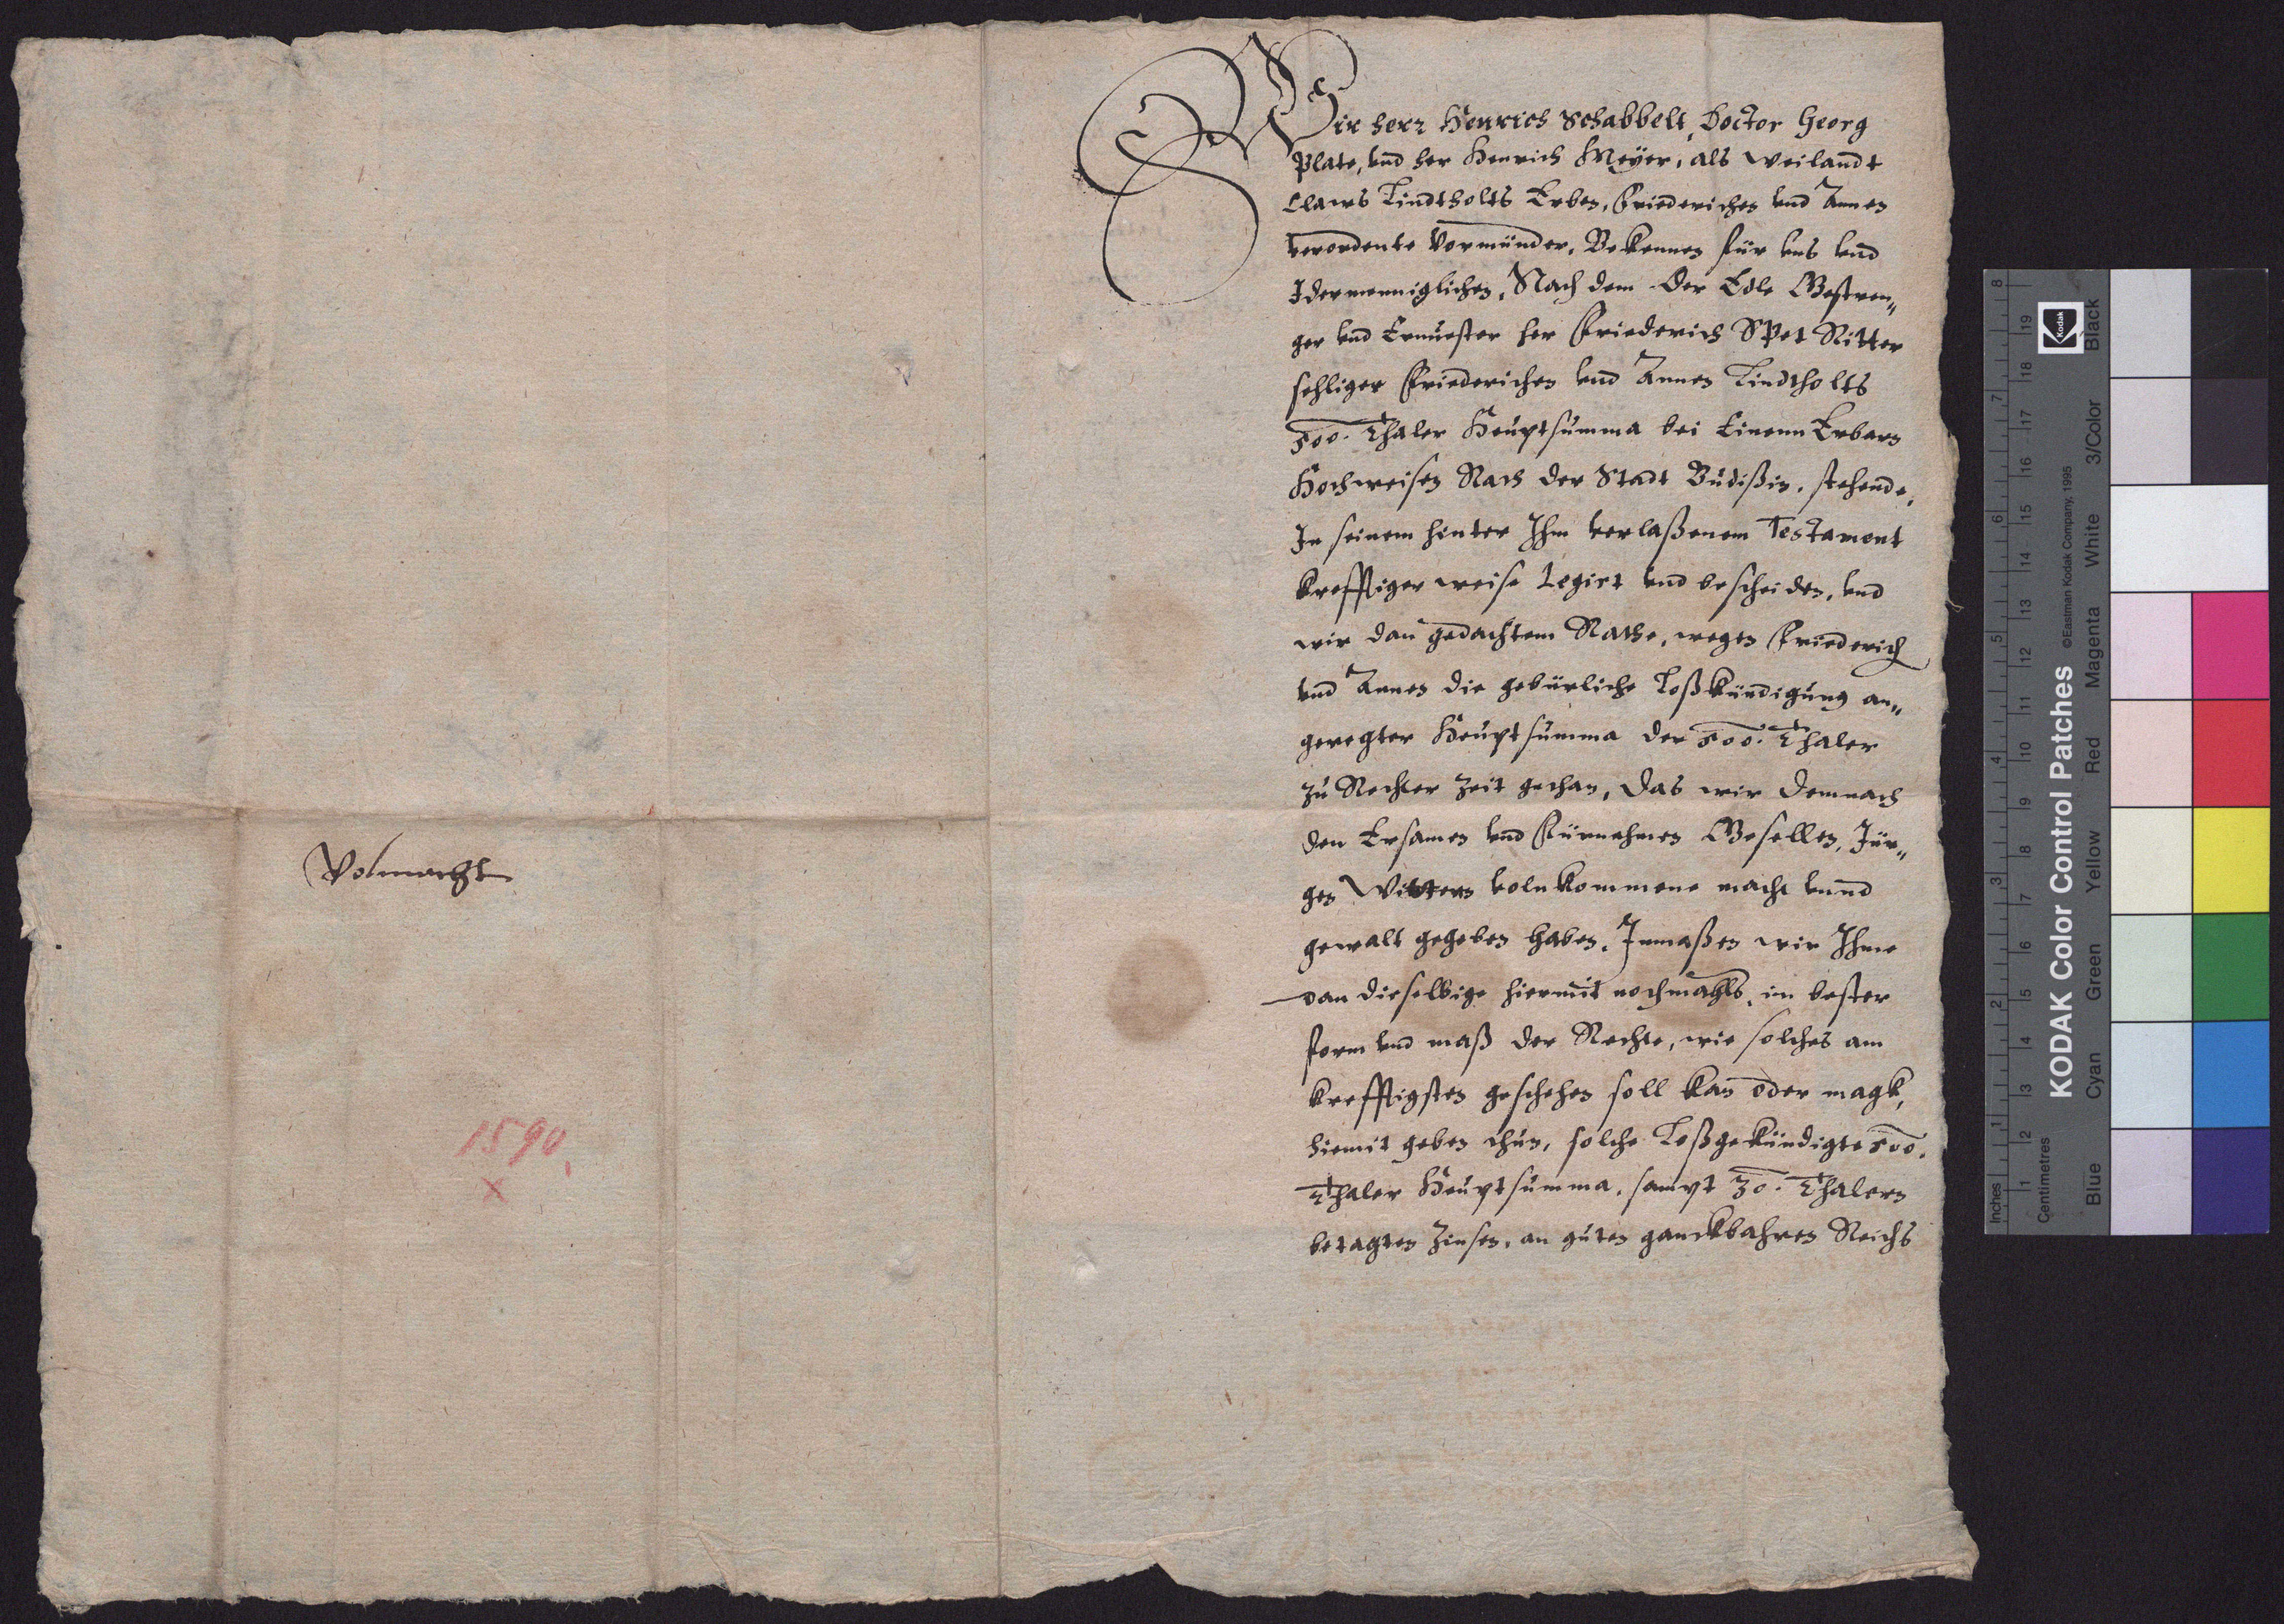 Volmacht
1590.
x
Wir herr Henrich Schabbelt, Doctor Georg
Plate, vnd her Henrich Meÿer, als weilandt
Claws Lindtholts Erben, Friederichen vnd Annen
verordente Vormünder, Bekennen für vns vnd
Idermenniglichen, Nach dem der Edle Gestren„
ger vnd Ernuester her Friederich Spet Ritter
sehliger Friederichen vnd Annen Lindtholts
500. Thaler Heuptsumma bei Einem Erbarn
Hochweisen Rath der Stadt Budißin, stehende,
In seinem hinter Ihm verlaßenem Testament
krefftiger weise Legirt vnd bescheiden, vnd
wir dan gedachtem Rathe, wegen Friederich
vnd Annen die gebürliche Loßkündigung an„
geregter Heuptsumma der 500. Thaler
zu Rechter zeit gethan, Das wir demnach
den Ersamen vnd Fürnehmen Gesellen, Jür„
gen Wittern volnkommene macht vnnd
gewalt gegeben haben, Inmaßen wir Ihme
dan dieselbige hiermit nochmahls, im bester
form vnd maß der Rechte, wie solches am
krefftigsten geschehen soll kan oder magk,
hiemit geben thun, solche Loßgekündigte 500.
Thaler Heuptsumma, sampt 30. Thalern
betagten Zinsen, an guten ganckbahren Reichs
KODAK Color Control Patches ©Eastman Kodak Company, 1995
Kodak
Inches 1 2 3 4 5 6 7 8
Centimetres 1 2 3 4 5 6 7 8 9 10 11 12 13 14 15 16 17 18 19
Blue Cyan Green Yellow Red Magenta White 3/Color Black